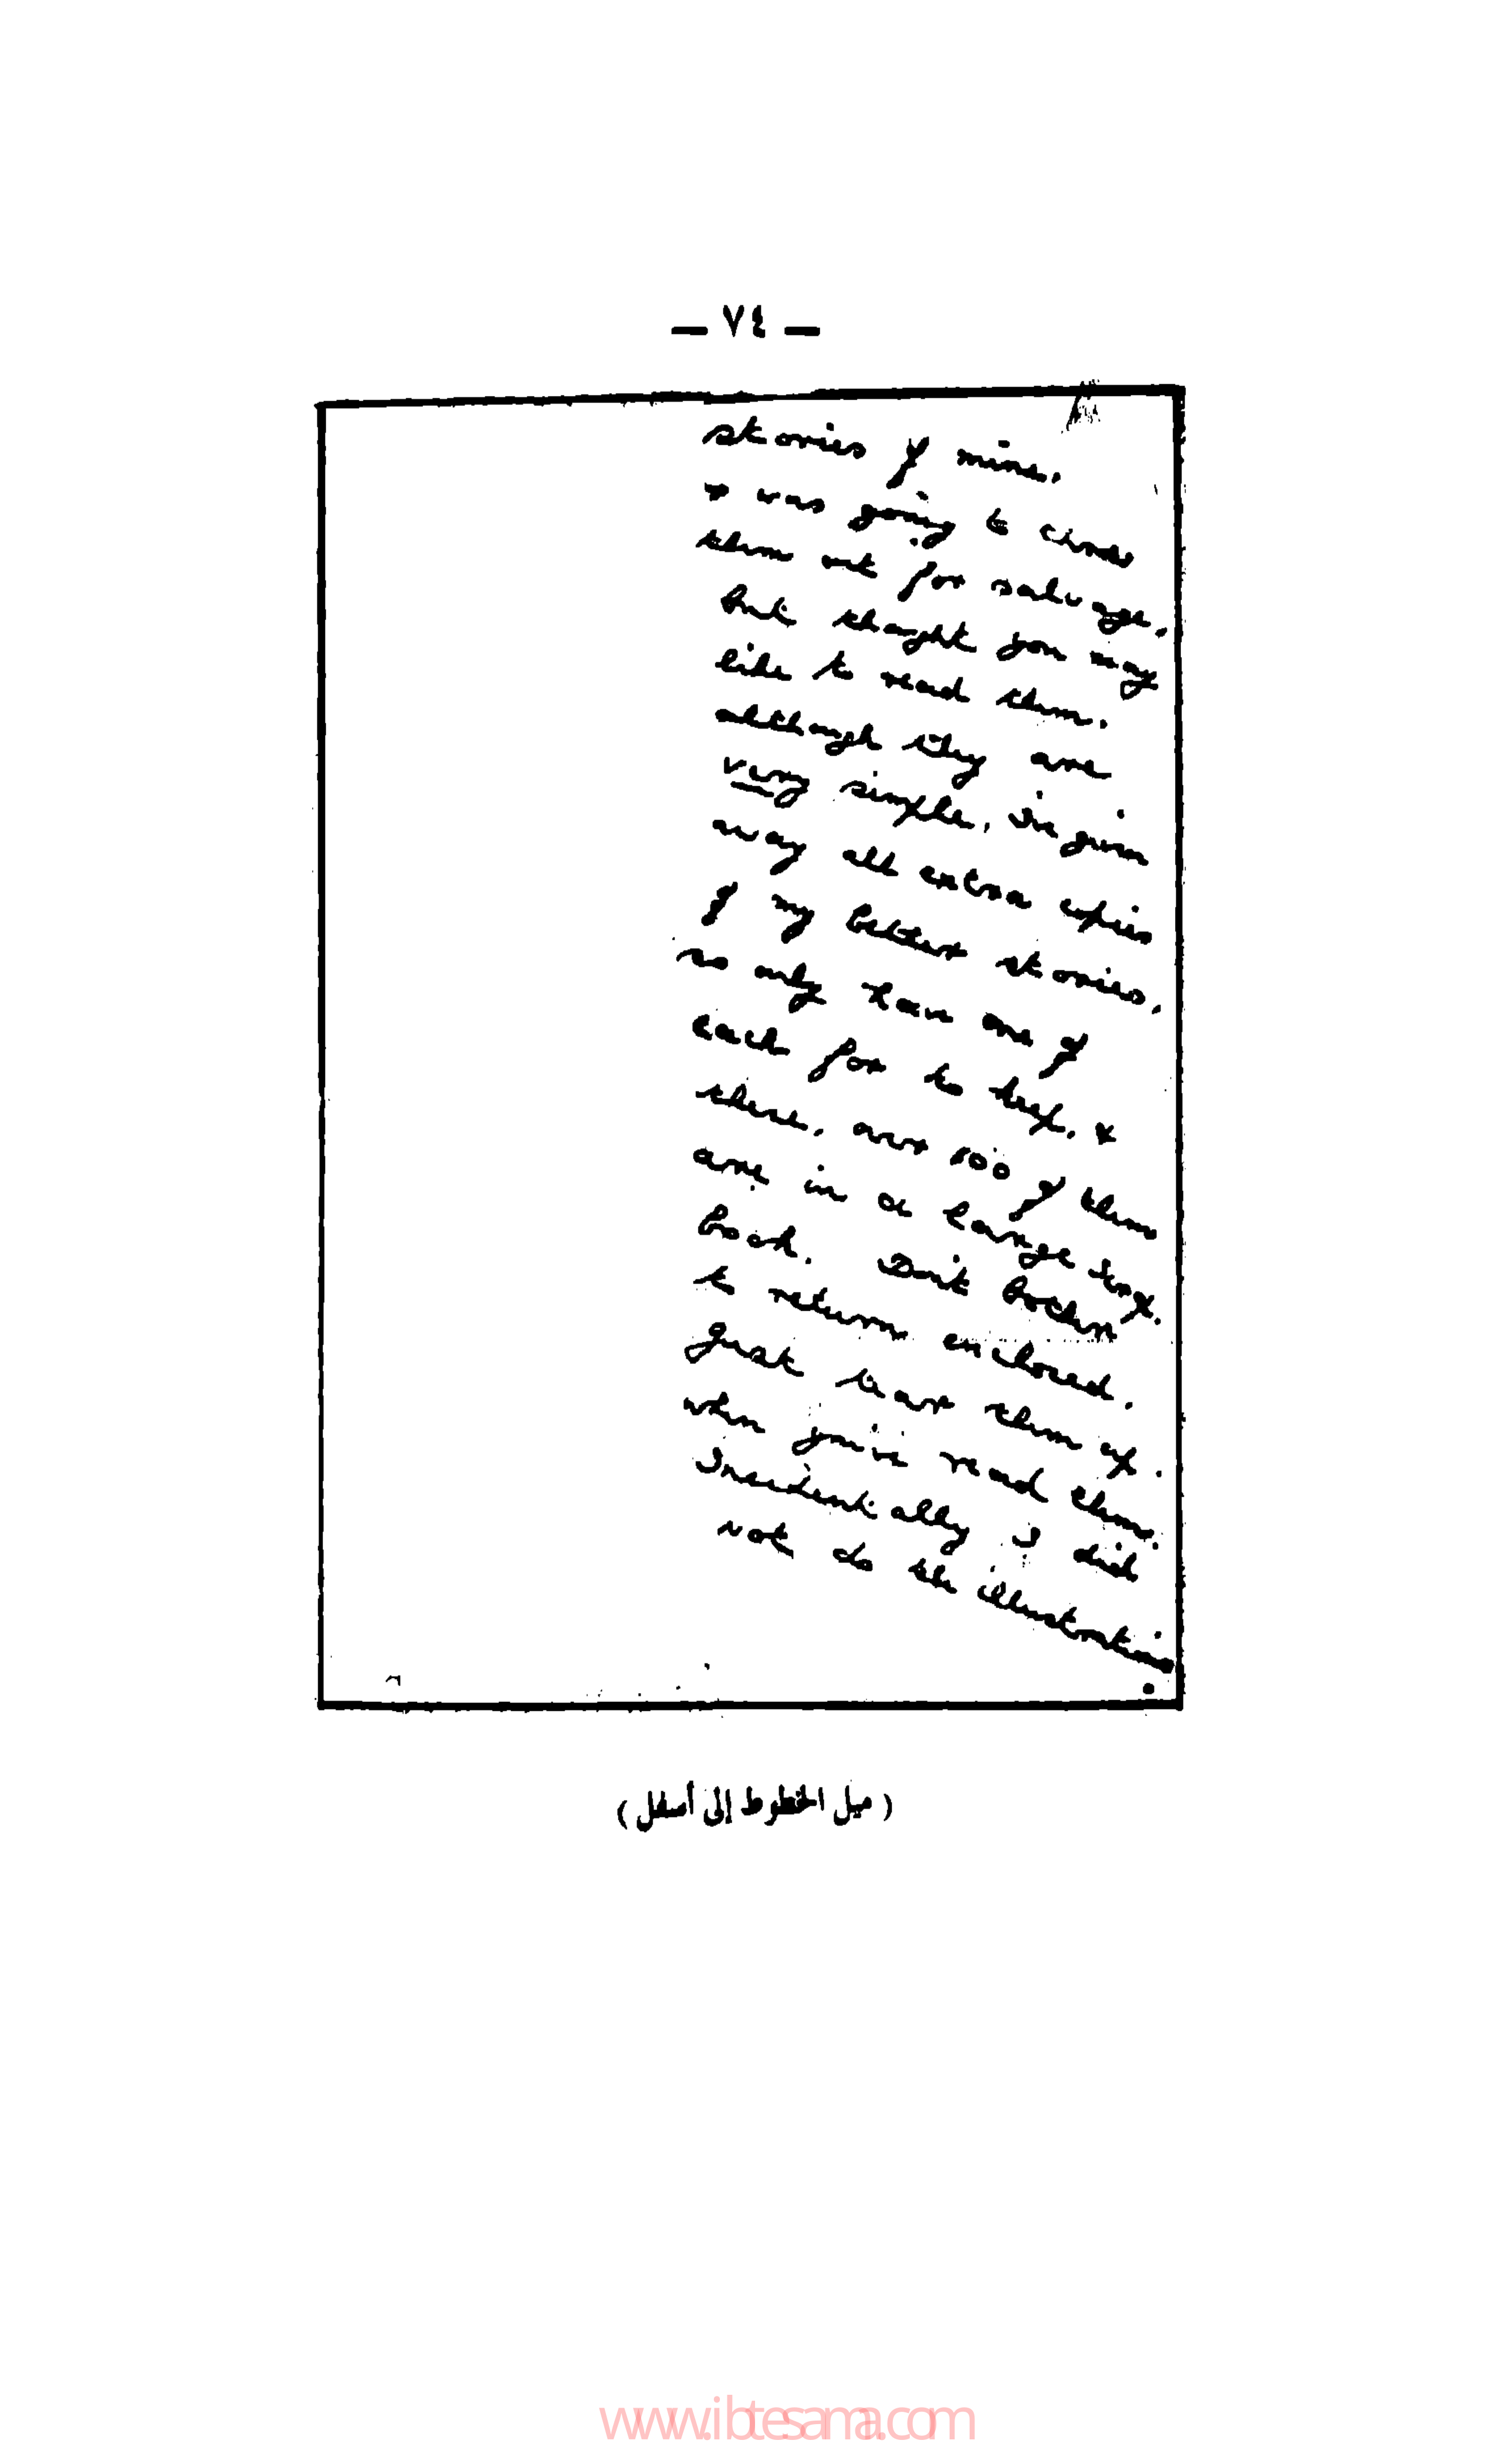 — ٧٤ —
stories of mine.
I was going to
them out for salvage.
But thought you may
like to read them.
although they are
very simple. I've given
away all extra copies
of my better stories.
so only have one of
each for to keep. &
there, over 100 of them
are in a large box.
Don't bother
to return enclosed.
Just tear them up.
when you've read them.
Incidentally I did
not do the illustrat
(ميل الخطوط إلى أسفل)
www.ibtesama.com